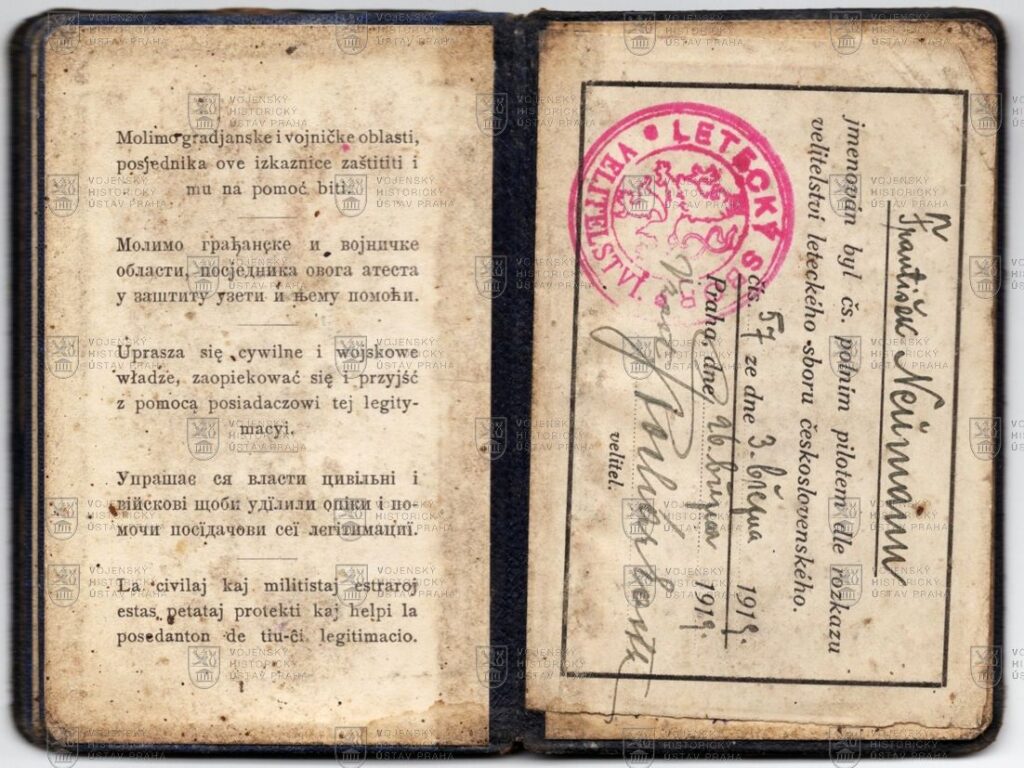 Molimo gradjanske i vojničke oblasti,
posjednika ove izkaznice zaštititi i
mu na pomoć biti.
Молимо грађанске и војничке
области, посједника овога атеста
у заштиту узети и њему помоћи.
Uprasza się cywilne i wojskowe
władze, zaopiekować się i przyjść
z pomocą posiadaczowi tej legity-
macyi.
Упрашає ся власти цивільні і
війскові щоби удїлили опіки і по-
мочи посїдачови сеї легітимациї.
La civilaj kaj militistaj estraroj
estas petataj protekti kaj helpi la
posedanton de tiu-ĉi legitimacio.
František Neümann
jmenován byl čs. polním pilotem dle rozkazu
velitelství leteckého sboru československého.
čís. 57 ze dne 3. března 1919.
Praha, dne 26. března 1919.
velitel.
LETECKÝ
VELITELSTVÍ
VOJENSKÝ
HISTORICKÝ
ÚSTAV PRAHA